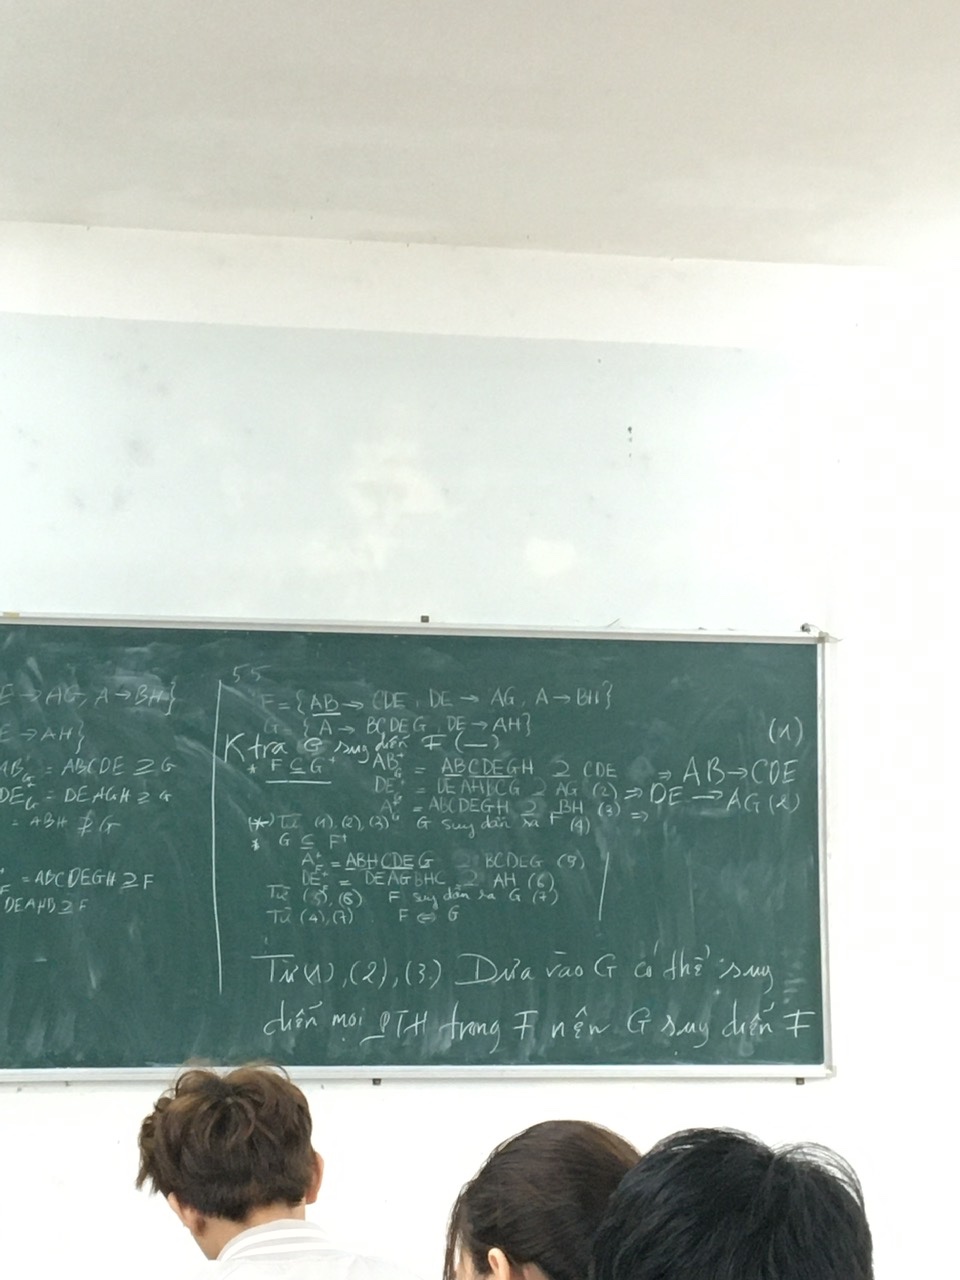 E → AG, A → BH}
E → AH}
AB⁺G = ABCDE ⊇ G
DE⁺G = DEAGH ⊇ G
= ABH ⊉ G
⁺F = ABCDEGH ⊇ F
DEAHB ⊇ F
55
F = {AB → CDE, DE → AG, A → BH}
G {A → BCDEG, DE → AH}
Ktra G suy diễn F (—)
* F ⊆ G⁺
AB⁺G = ABCDEGH ⊇ CDE
DE⁺ = DEAHBCG ⊇ AG (2)
A⁺G = ABCDEGH ⊇ BH (3) ⇒
(*) Từ (1), (2), (3) G suy dẫn ra F (4)
* G ⊆ F⁺
A⁺F = ABHCDEG ⊇ BCDEG (5)
DE⁺F = DEAGBHC ⊇ AH (6)
Từ (5), (6) F suy dẫn ra G (7)
Từ (4), (7) F ⇔ G
(1)
⇒ AB → CDE
⇒ DE → AG (2)
Từ (1), (2), (3) Dựa vào G có thể suy
diễn mọi PTH trong F nên G suy diễn F